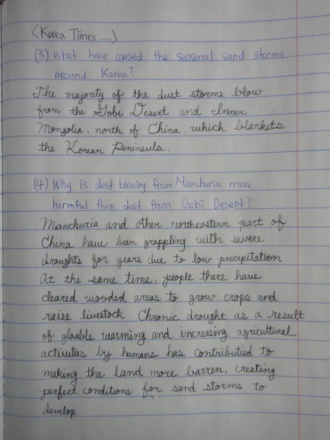 <Korea Times....>
(3) What have caused the seasonal sand storms
around Korea?
The majority of the dust storms blow
from the Gobi Desert and Inner
Mongolia, north of China, which blankets
the Korean Peninsula.
(4) Why is dust blowing from Manchuria more
harmful than dust from Gobi Desert?
Manchuria and other northeastern part of
China have been grappling with severe
droughts for years due to low precipitation.
At the same time, people there have
cleared wooded areas to grow crops and
raise livestock. Chronic drought as a result
of gloable warming and increasing agricultural
activities by humans has contributied to
making the land more barren, creating
perfect conditions for sand storms to
develop